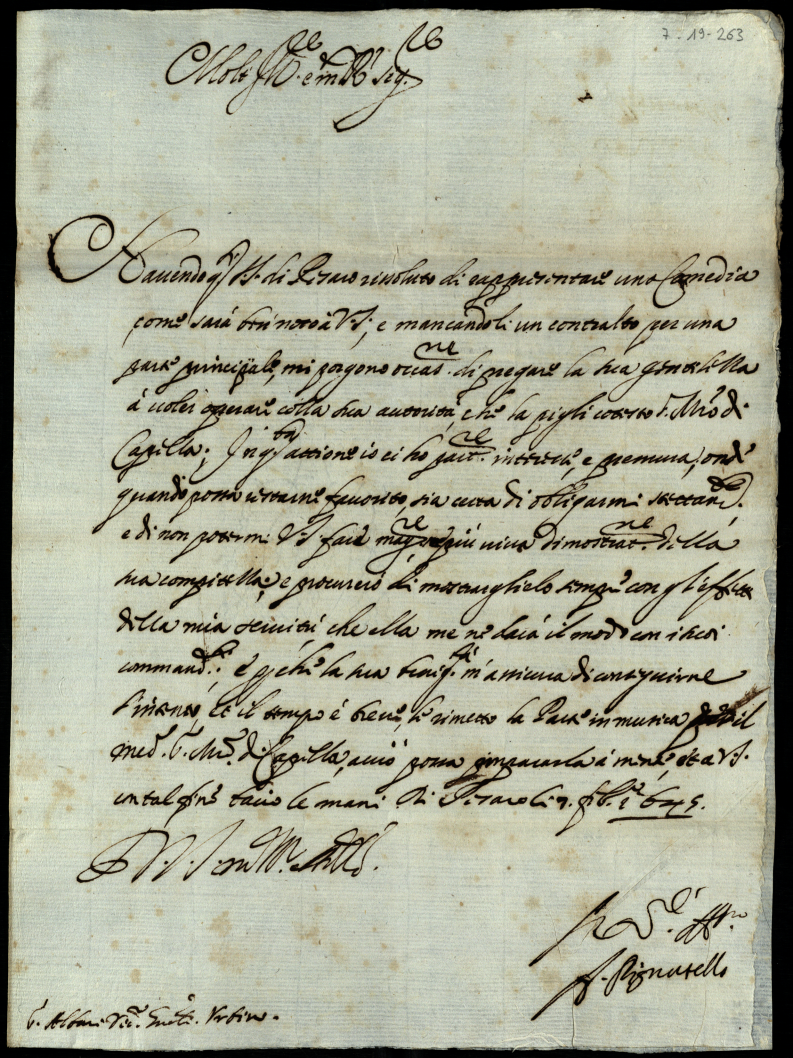 7-19-263
Molt Ill.re e m.to R.do Sig.re
Havendo q.ti SS.ri di Pesaro risoluto di rappresentare una Comedia
come sarà ben noto à V.S., e mancandoli un contralto per una
parte principale, mi porgono occas.ne di pregare la sua gentilezza
à voler operare colla sua autorità, che la pigli cotesto S. Mro di
Capella; In q.sta attione io ci ho part.re interesse e premura, onde
quando possa restarne favorito, sia certa di obligarmi
e di non potermi V.S. fare mag.re più viva dimostrat.ne della
sua compitezza, e procurerò di mostrarglielo sempre con gl'effetti
della mia servitù che ella me ne darà il modo con i suoi
command.ti; e perche la sua benig.tà m'assicura di conseguirne
l'intento, et il tempo è breve, le rimetto la Parte in musica il
med.o S. Mro di Capella, acciò possa impararla à mente, et a V.S.
con tal fine bacio le mani. Di Pesaro li 9. feb. 1645.
D. V. S. m.to Ill.re
Ser.re aff.mo
f. Pignatello
S. Albani Urbino.